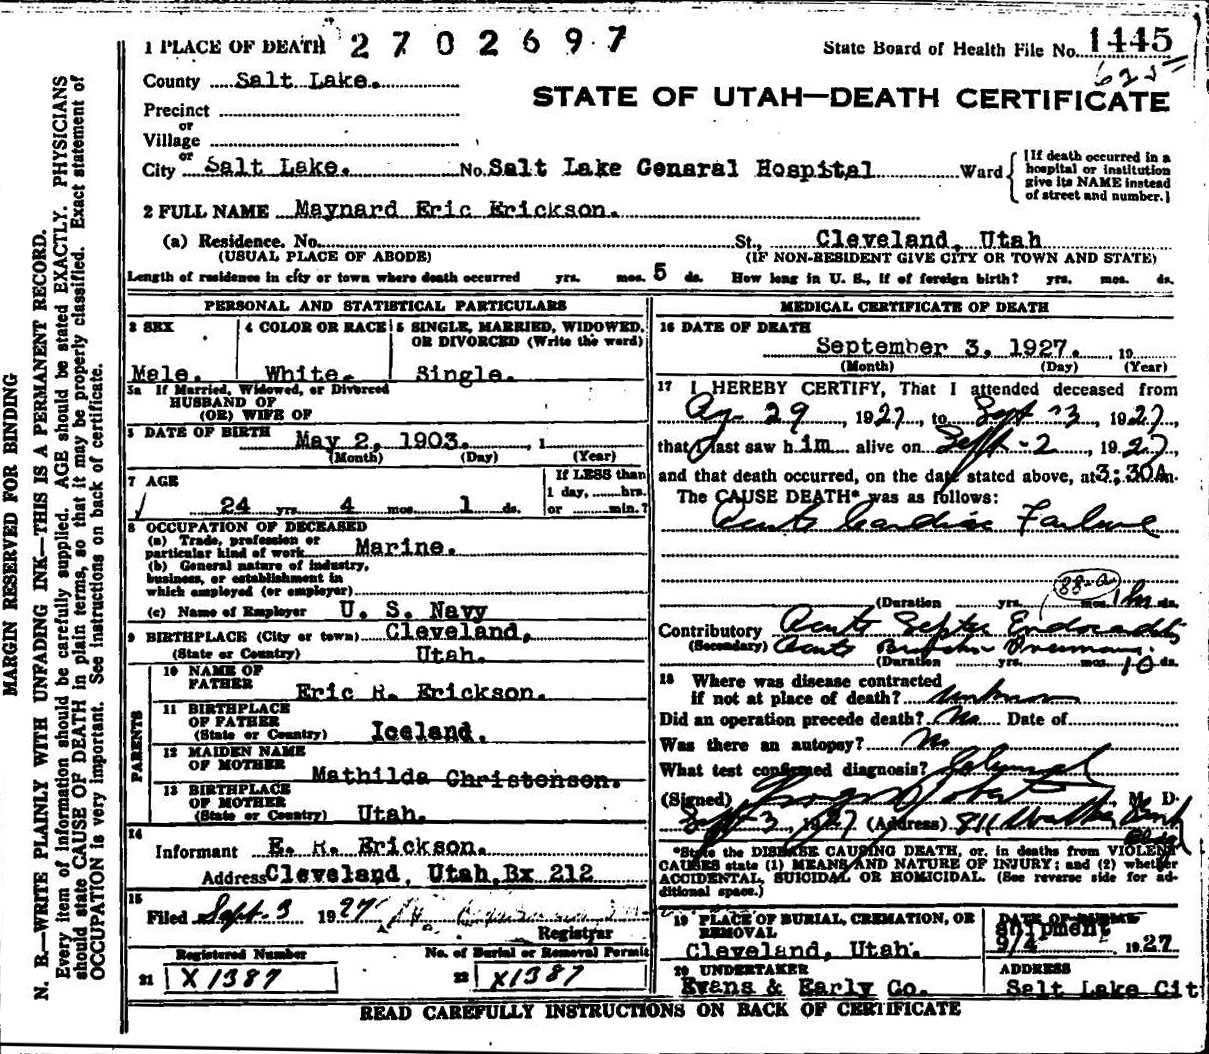 1 PLACE OF DEATH 2702697 State Board of Health File No. 1445
County Salt Lake. 625
STATE OF UTAH—DEATH CERTIFICATE
Precinct
or
Village
or
City Salt Lake. No. Salt Lake Genaral Hospital Ward
[If death occurred in a
hospital or institution
give its NAME instead
of street and number.]
2 FULL NAME Maynard Eric Erickson.
(a) Residence. No. St., Cleveland, Utah
(USUAL PLACE OF ABODE) (IF NON-RESIDENT GIVE CITY OR TOWN AND STATE)
Length of residence in city or town where death occurred yrs. mos. 5 ds. How long in U. S., if of foreign birth? yrs. mos. ds.
PERSONAL AND STATISTICAL PARTICULARS
3 SEX 4 COLOR OR RACE 5 SINGLE, MARRIED, WIDOWED,
OR DIVORCED (Write the word)
Male. White. Single.
5a If Married, Widowed, or Divorced
HUSBAND OF
(OR) WIFE OF
DATE OF BIRTH May 2, 1903. , 1
(Month) (Day) (Year)
7 AGE If LESS than
1 day, hrs.
24 yrs. 4 mos. 1 ds. or min.?
8 OCCUPATION OF DECEASED
(a) Trade, profession or
particular kind of work Marine.
(b) General nature of industry,
business, or establishment in
which employed (or employer)
(c) Name of Employer U. S. Navy
9 BIRTHPLACE (City or town) Cleveland,
(State or Country) Utah.
PARENTS
10 NAME OF
FATHER Eric R. Erickson.
11 BIRTHPLACE
OF FATHER
(State or Country) Iceland.
12 MAIDEN NAME
OF MOTHER Mathilda Christenson.
13 BIRTHPLACE
OF MOTHER
(State or Country) Utah.
14
Informant E. R. Erickson.
Address Cleveland, Utah, Bx 212
15
Filed Sept. 3 1927
Registrar
Registered Number No. of Burial or Removal Permit
21 X1387 22 X1387
MEDICAL CERTIFICATE OF DEATH
16 DATE OF DEATH
September 3, 1927. , 19
(Month) (Day) (Year)
17 I HEREBY CERTIFY, That I attended deceased from
Ag- 29, 1927, to Sept-3, 1927,
that I last saw him alive on Sept-2, 1927,
and that death occurred, on the date stated above, at 3:30A m.
The CAUSE DEATH* was as follows:
Acute Cardiac Failure
88-a
(Duration yrs. mos. 1 hr ds.
Contributory Acute Septic Endocarditis
(Secondary) Acute Broncho-Pneumonia.
(Duration yrs. mos. 10 ds.
18 Where was disease contracted
if not at place of death? unknown
Did an operation precede death? No Date of
Was there an autopsy? No
What test confirmed diagnosis?
(Signed) , M. D.
Sept 3, 1927 (Address) 811 Walker Bank
*State the DISEASE CAUSING DEATH, or, in deaths from VIOLENT
CAUSES state (1) MEANS AND NATURE OF INJURY; and (2) whether
ACCIDENTAL, SUICIDAL OR HOMICIDAL. (See reverse side for ad-
ditional space.)
19 PLACE OF BURIAL, CREMATION, OR
REMOVAL
Cleveland, Utah.
DATE OF BURIAL
Shipment
9/4 1927
20 UNDERTAKER ADDRESS
Evans & Early Co. Salt Lake Cit
READ CAREFULLY INSTRUCTIONS ON BACK OF CERTIFICATE
MARGIN RESERVED FOR BINDING
N. B.—WRITE PLAINLY WITH UNFADING INK—THIS IS A PERMANENT RECORD.
Every item of information should be carefully supplied. AGE should be stated EXACTLY. PHYSICIANS
should state CAUSE OF DEATH in plain terms, so that it may be properly classified. Exact statement of
OCCUPATION is very important. See instructions on back of certificate.